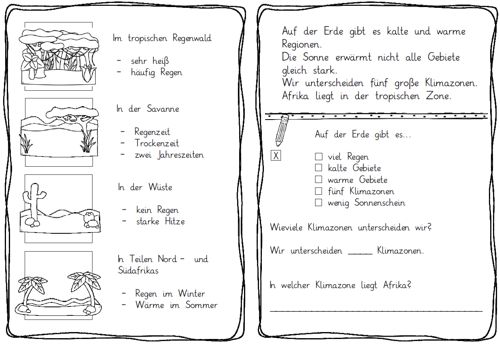 Im tropischen Regenwald
- sehr heiß
- häufig Regen
In der Savanne
- Regenzeit
- Trockenzeit
- zwei Jahreszeiten
In der Wüste
- kein Regen
- starke Hitze
In Teilen Nord - und
Südafrikas
- Regen im Winter
- Wärme im Sommer
Auf der Erde gibt es kalte und warme
Regionen.
Die Sonne erwärmt nicht alle Gebiete
gleich stark.
Wir unterscheiden fünf große Klimazonen.
Afrika liegt in der tropischen Zone.
Auf der Erde gibt es...
X
☐ viel Regen
☐ kalte Gebiete
☐ warme Gebiete
☐ fünf Klimazonen
☐ wenig Sonnenschein
Wieviele Klimazonen unterscheiden wir?
Wir unterscheiden _____ Klimazonen.
In welcher Klimazone liegt Afrika?